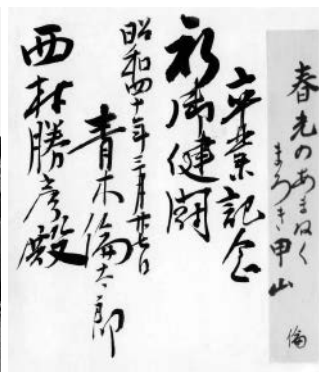 春光のあまねく
まろき甲山
倫
卒業記念
祈御健闘
昭和四十二年三月廿七日
青木倫太郎
西村勝彦殿